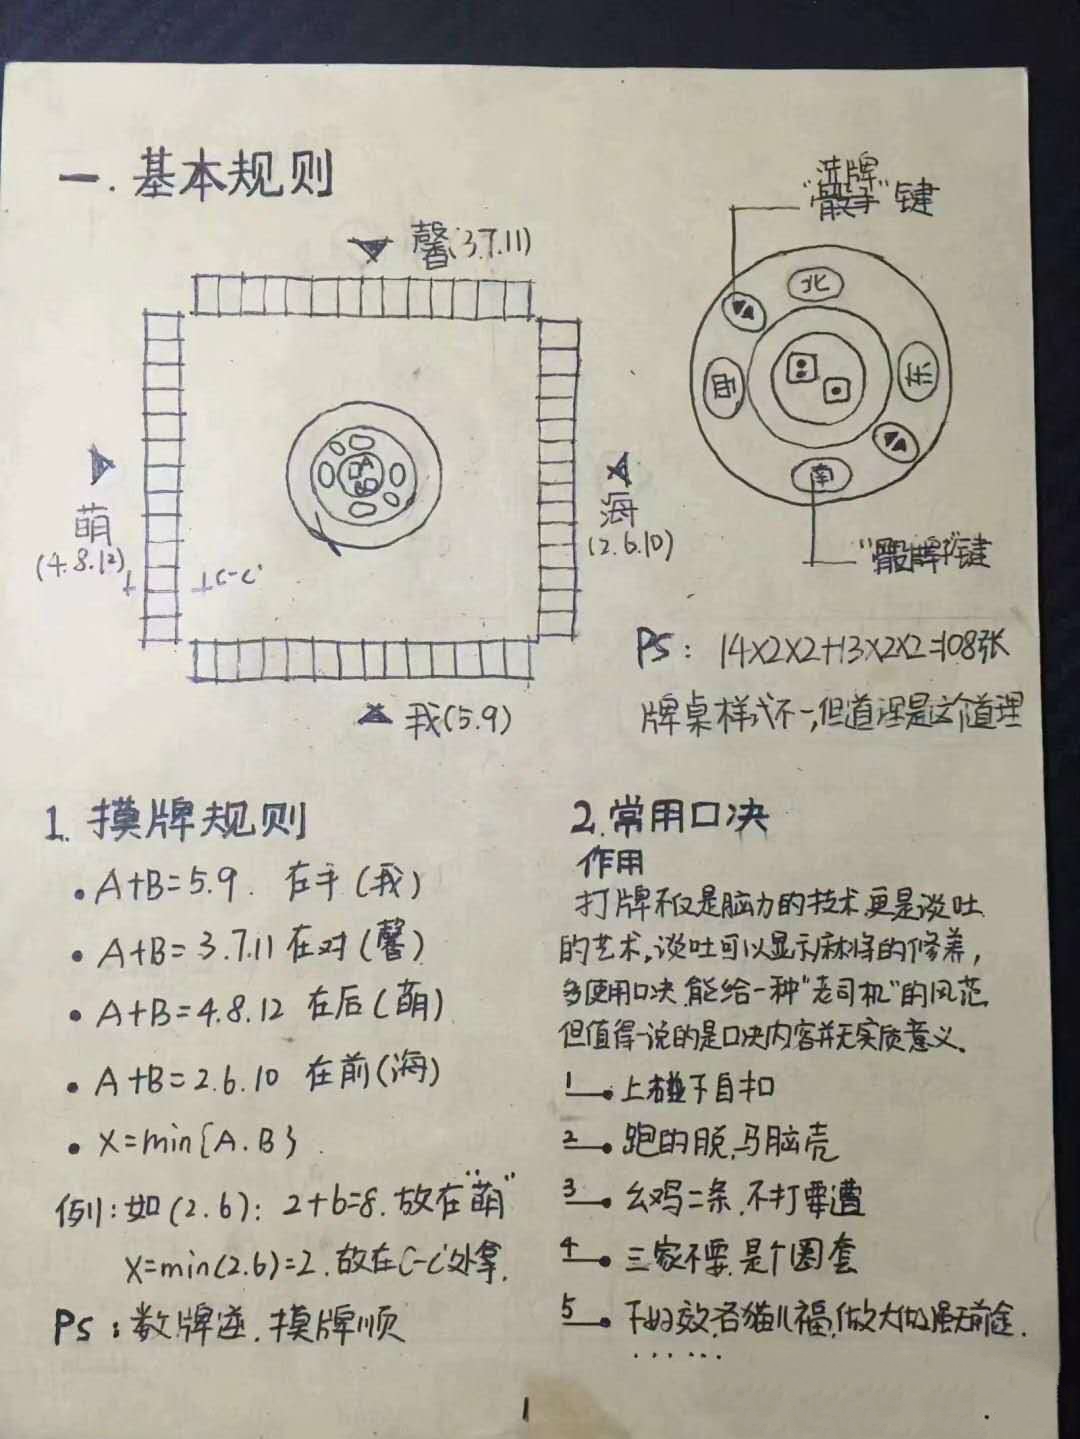 一. 基本规则
馨(3.7.11)
萌
(4.8.12)
C-C'
海
(2.6.10)
我(5.9)
洗牌
"骰子"键
北
西
东
南
键
PS: 14X2X2+13X2X2=108张
牌桌样式不一,但道理是这个道理
1. 摸牌规则
• A+B=5.9. 在手(我)
• A+B=3.7.11 在对(馨)
• A+B=4.8.12 在后(萌)
• A+B=2.6.10 在前(海)
• X=min{A.B}.
例:如(2.6): 2+6=8. 放在"萌"
X=min(2.6)=2. 放在C-C'处拿.
PS: 数牌逆. 摸牌顺
2. 常用口决
作用
打牌不仅是脑力的技术,更是谈吐
的艺术,谈吐可以显示麻将的修养,
多使用口决,能给一种"老司机"的风范
但值得一说的是口决内容并无实质意义.
1 上碰下自扣
2 跑的脱,马脑壳
3 幺鸡二条,不打要遭
4 三家不要,是个圈套
5 福,做大做强无前途.
......
1